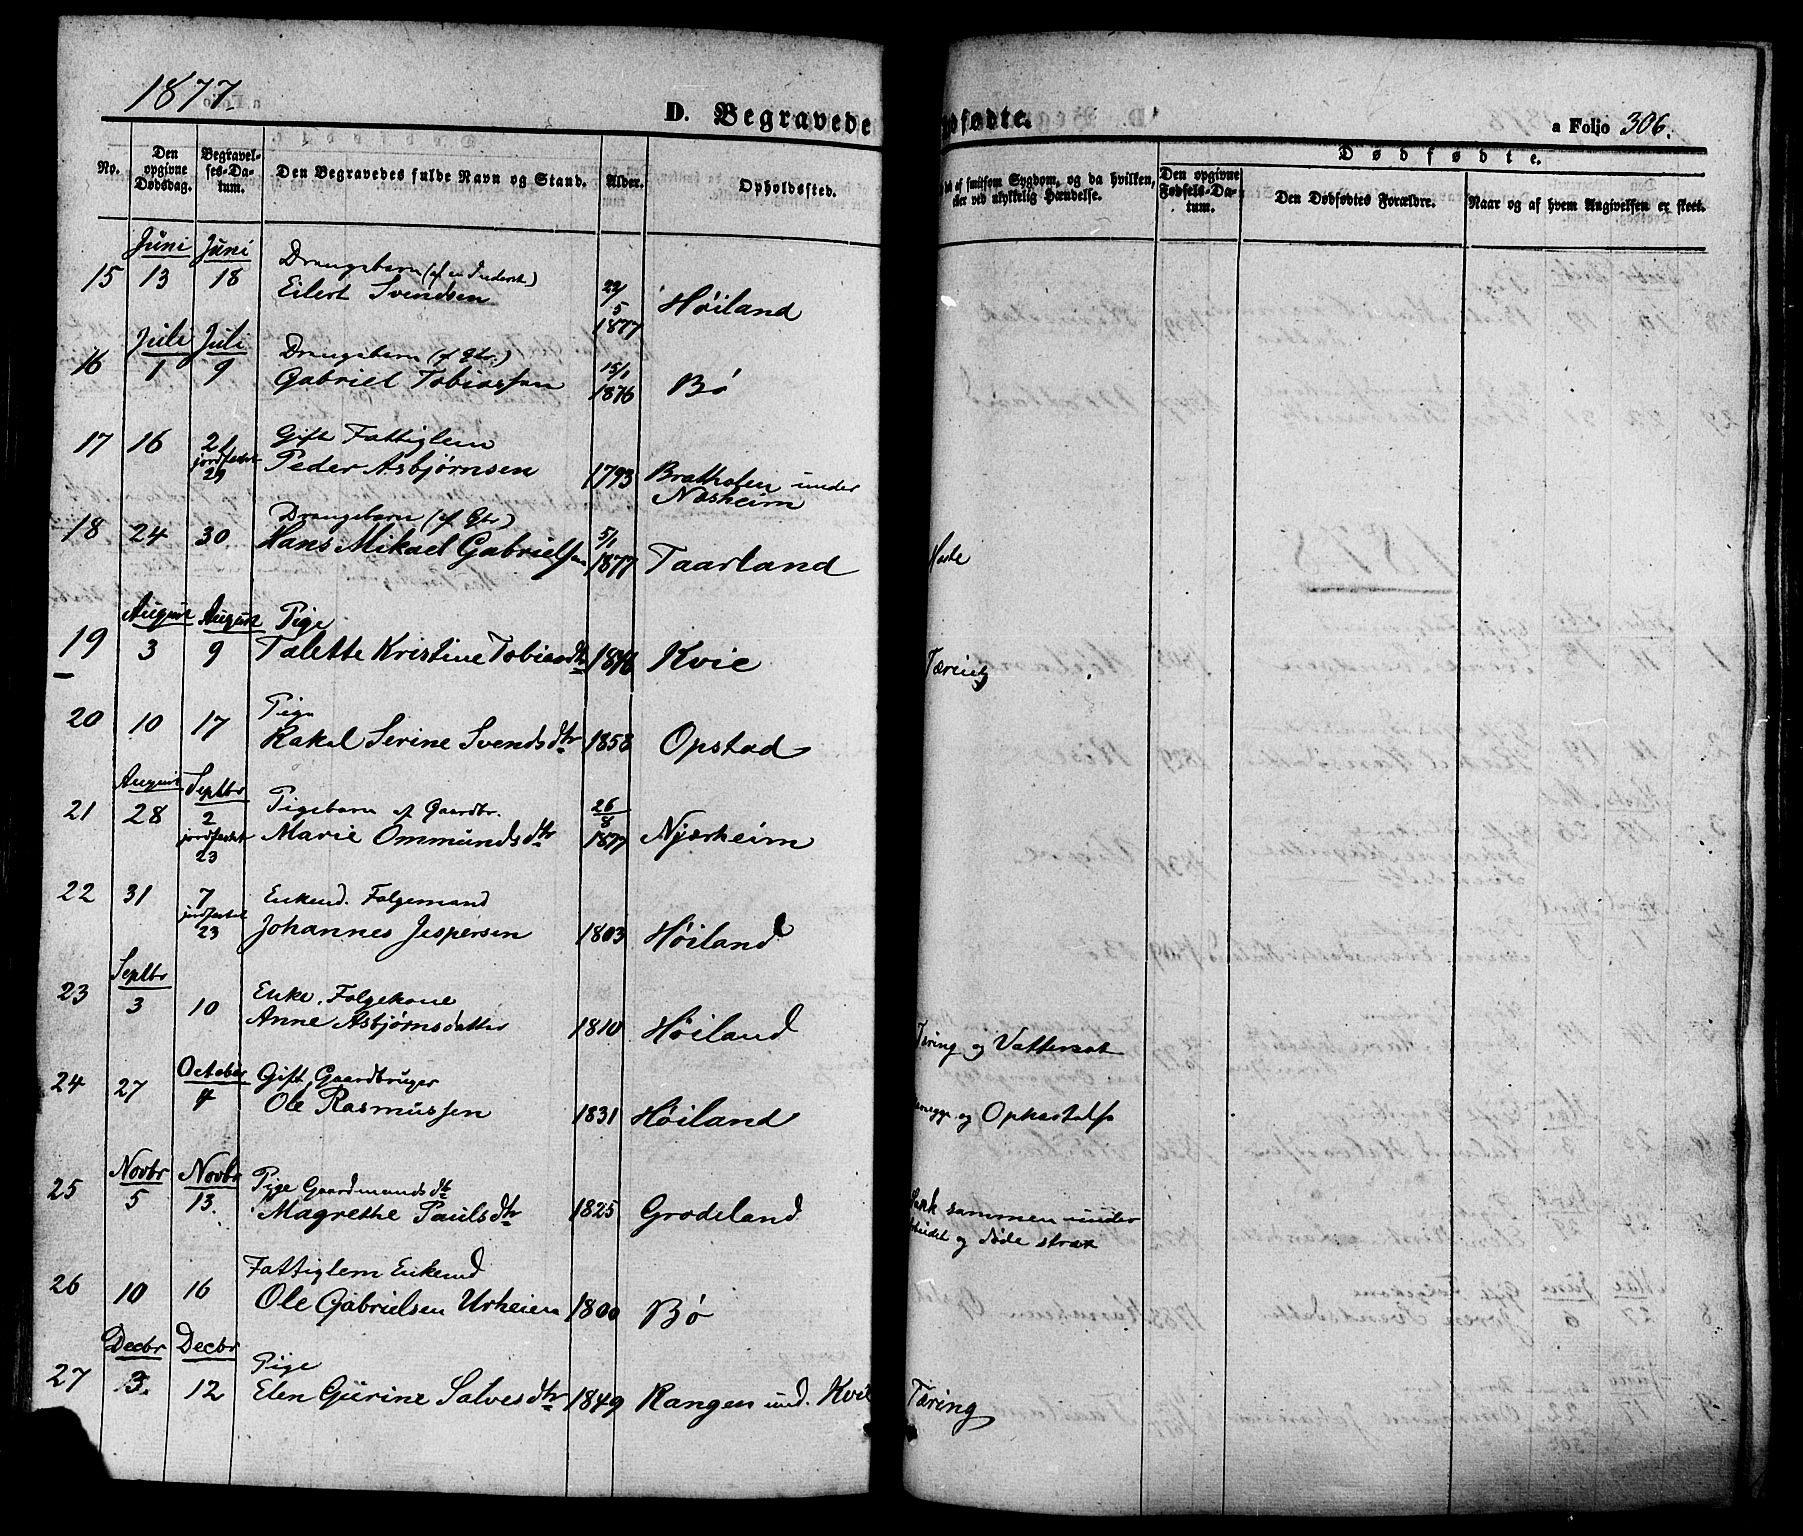 1877
D. Begravede
dfødte.
a Folio 306.
No.
Den opgivne Dødsdag.
Begravelses-Datum.
Den Begravedes fulde Navn og Stand.
Alder.
Opholdssted.
af smitsom Sygdom, og da hvilken, eller ved ulykkelig Hændelse.
Dødfødte.
Den opgivne Fødsels-Datum.
Den Dødfødtes Forældre.
Naar og af hvem Angivelsen er skeet.
Juni Juni
15 13 18 Drengebarn (af en Inderst)
Eilert Svendsen 22/5 1877 Høiland
Juli Juli
16 1 9 Drengebarn (af Gbr.)
Gabriel Tobiassen 15/1 1876 Bø
17 16 21 jordfæstet 29 Gift Fattiglem
Peder Asbjørnsen 1793 Brathofen under
Næsheim
18 24 30 Drengebarn (af Gbr)
Hans Mikael Gabrielsen 5/1 1877 Taarland Hoste
August August
19 3 9 Pige
Talette Kristine Tobiasdtr Kvie Tæring
20 10 17 Pige
Rakel Serine Svendsdtr 1858 Opstad
August Septbr
21 28 2 jordfæstet 23 Pigebarn af Gaardbr.
Marie Ommundsdtr 26/8 1877 Njærheim
22 31 7 jordfæstet 23 Enkemd. Folgemand
Johannes Jespersen 1803 Høiland
Septbr
23 3 10 Enke, Folgekone
Anne Asbjørnsdatter 1810 Høiland Tæring og Vattersot
October
24 27 4 Gift Gaardbruger
Ole Rasmussen 1831 Høiland og Opkastelse
Novbr Novbr
25 5 13. Pige Gaardmandsdtr
Magrethe Paulsdtr 1825 Grodeland sammen under
og døde strax
26 10 16 Fattiglem Enkemd
Ole Gabrielsen Urheien 1800 Bø
Decbr Decbr
27 3. 12 Pige
Elen Gurine Salvesdtr 1849 Rangen und. Kvie Tæring